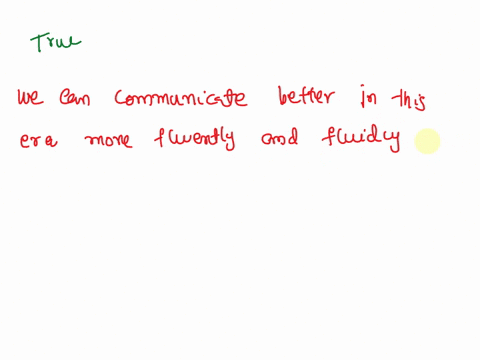 True
We can communicate better in this
era more fluently and fluidly